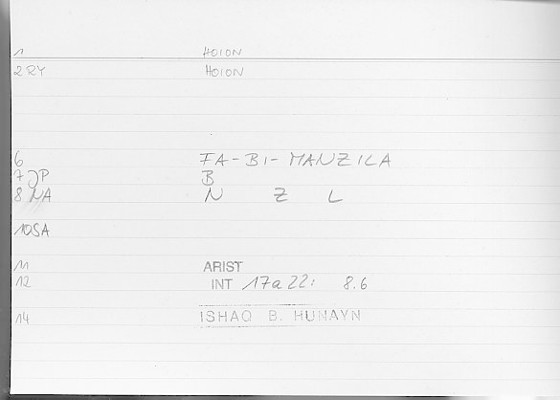 1 HOION
2 RY HOION
6 FA-BI-MANZILA
7 JP B
8 NA N Z L
10 SA
11 ARIST
12 INT 17a22: 8.6
14 ISHAQ B. HUNAYN